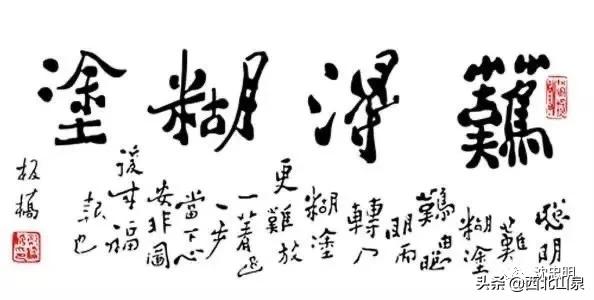 難得糊塗
聰明
難
糊塗
難由聰
明而
轉入
糊塗
更難放
一著退
一步
當下心
安非圖
後来福
報也
板橋
头条 @西北山泉